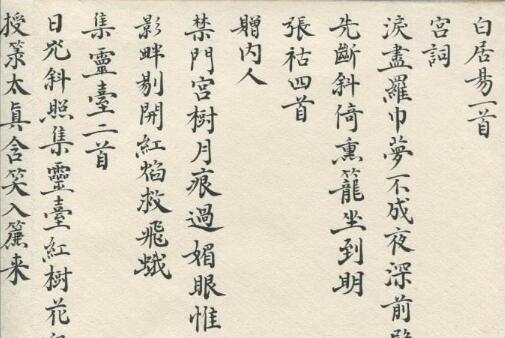 白居易一首
宮詞
淚盡羅巾夢不成夜深前殿
先斷斜倚熏籠坐到明
張祜四首
贈內人
禁門宮樹月痕過媚眼惟
影畔剔開紅焰救飛蛾
集靈臺二首
日光斜照集靈臺紅樹花
授箓太真含笑入簾来